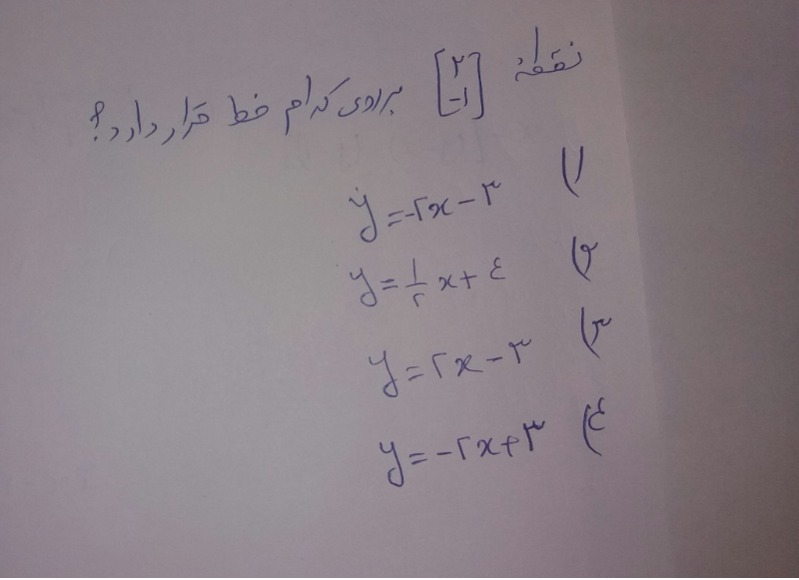 نقطهٔ [۲ -۱] برروی کدام خط قرار دارد؟
۱) y=-۲x-۳
۲) y=۱/۲x+٤
۳) y=۲x-۳
٤) y=-۲x+۳